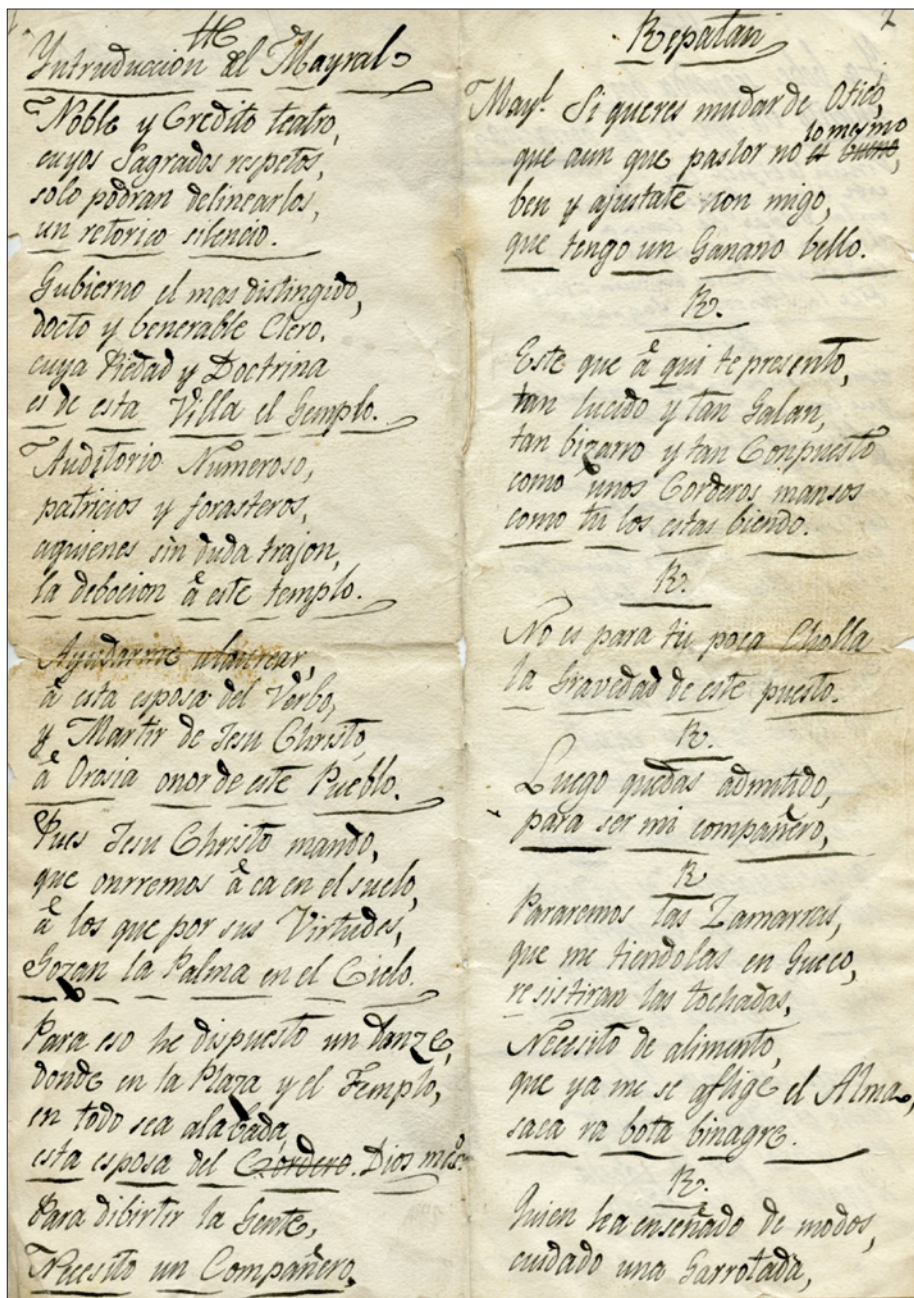 Yntruduccion del Mayral
Noble y Credito teatro,
cuyos Sagrados respetos,
solo podran delinearlos,
un retorico silencio.
Gubierno el mas distingido,
docto y benerable Clero.
cuya Piedad y Doctrina
es de esta Villa el Gemplo.
Auditorio Numeroso,
patricios y forasteros,
aquienes sin duda trajon,
la debocion â este templo.
Ayudarme alaurear,
â esta esposa del Verbo,
y Martir de Jesu Christo,
â Orosia onor de este Pueblo.
Pues Jesu Christo mando,
que onrremos â ca en el suelo,
â los que por sus Virtudes,
Gozan la Palma en el Cielo.
Para eso he dispuesto un danze,
donde en la Plaza y el Templo,
en todo sea alabada,
esta esposa del Cordero. Dios mẽs
Para dibirtir la Gente,
Necesito un Compañero.
2
Repatan
Mayl. Si queres mudar de Ofico,
lo mesmo
que aun que pastor no es bueno,
ben y ajustate con migo,
que tengo un Ganano bello.
R.
Este que â qui te presento,
tan lucido y tan Galan,
tan bizarro y tan Compuesto
como unos Corderos mansos
como tu los estas biendo.
R.
No es para tu poca Cholla
la Gravedad de este puesto.
R.
Luego quedas admitido,
para ser mi compañero,
R
Pararemos las Zamarras,
que me tiendolas en Gueco,
resistiran las tochadas,
Necesito de alimento,
que ya me se aflige el Alma,
saca ra bota binagre.
R.
Quien ha enseñado de modos,
cuidado una Garrotada,